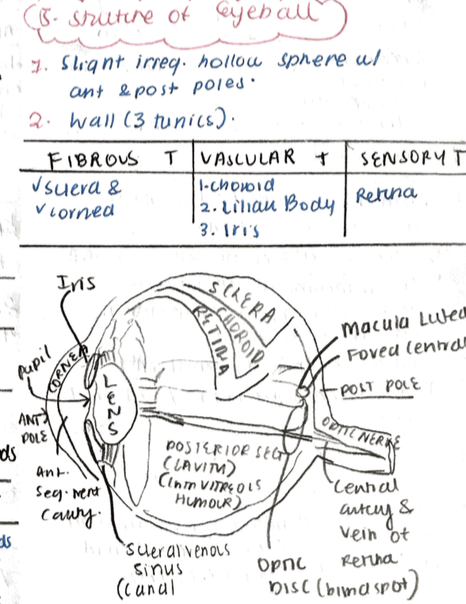 B. struture of eyeball
1. Slight irreg. hollow sphere w/
ant & post poles.
2. Wall (3 tunics).
FIBROUS T VASCULAR T SENSORY T
√ sclera & 1. choroid Retina
√ cornea 2. Ciliary Body
3. Iris
Iris
SCLERA
CHOROID
RETINA
Macula Lutea
Fovea Central
pupil
CORNEA
LENS
POST POLE
ANT
POLE
OPTIC NERVE
ds
Ant.
Segment
Cavity.
POSTERIOR SEG
(CAVITY)
(VITREOUS
HUMOUR)
Central
artery &
vein of
Retina
Scleral venous
sinus
(canal
Optic
DISC (blind spot)
ds